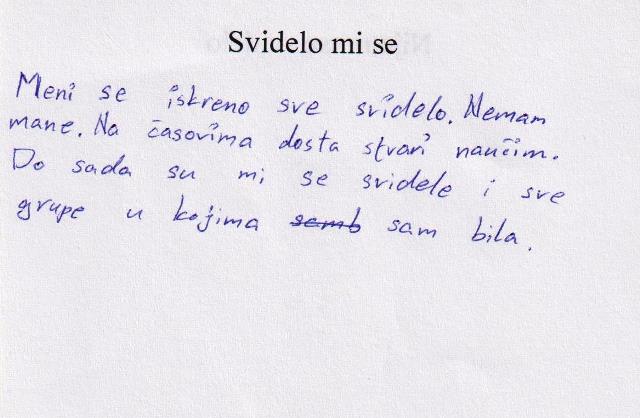 Svidelo mi se
Meni se iskreno sve svidelo. Nemam
mane. Na časovima dosta stvari naučim.
Do sada su mi se svidele i sve
grupe u kojima samb sam bila.